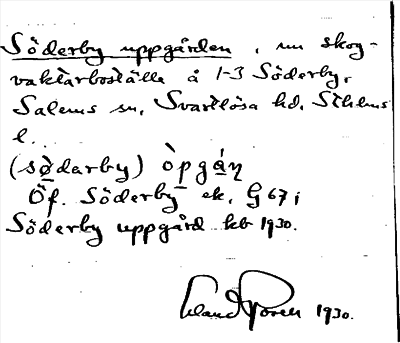 Söderby uppgården, nu skog-
vaktarboställe å 1-3 Söderby,
Salems sn, Svartlösa hd, Sthlms
l.
(sødarby) òpgán
Öf. Söderby ek. G 67;
Söderby uppgård kb 1930.
1930.